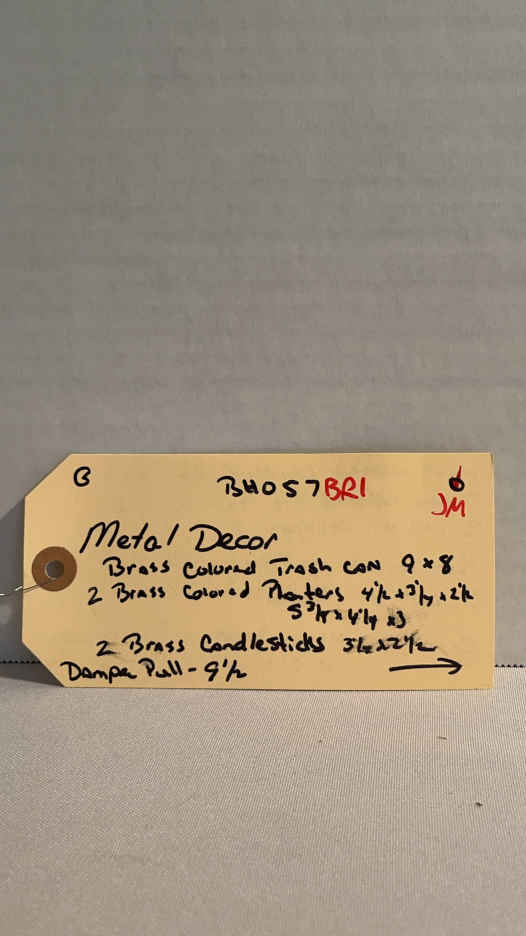 B BH057BR1
JM
Metal Decor
Brass Colored Trash can 9 x 8
2 Brass Colored Planters 4 1/2 x 3 1/4 x 2 1/2
5 3/4 x 4 1/4 x 3
2 Brass Candlesticks
Damper Pull - 9 1/2